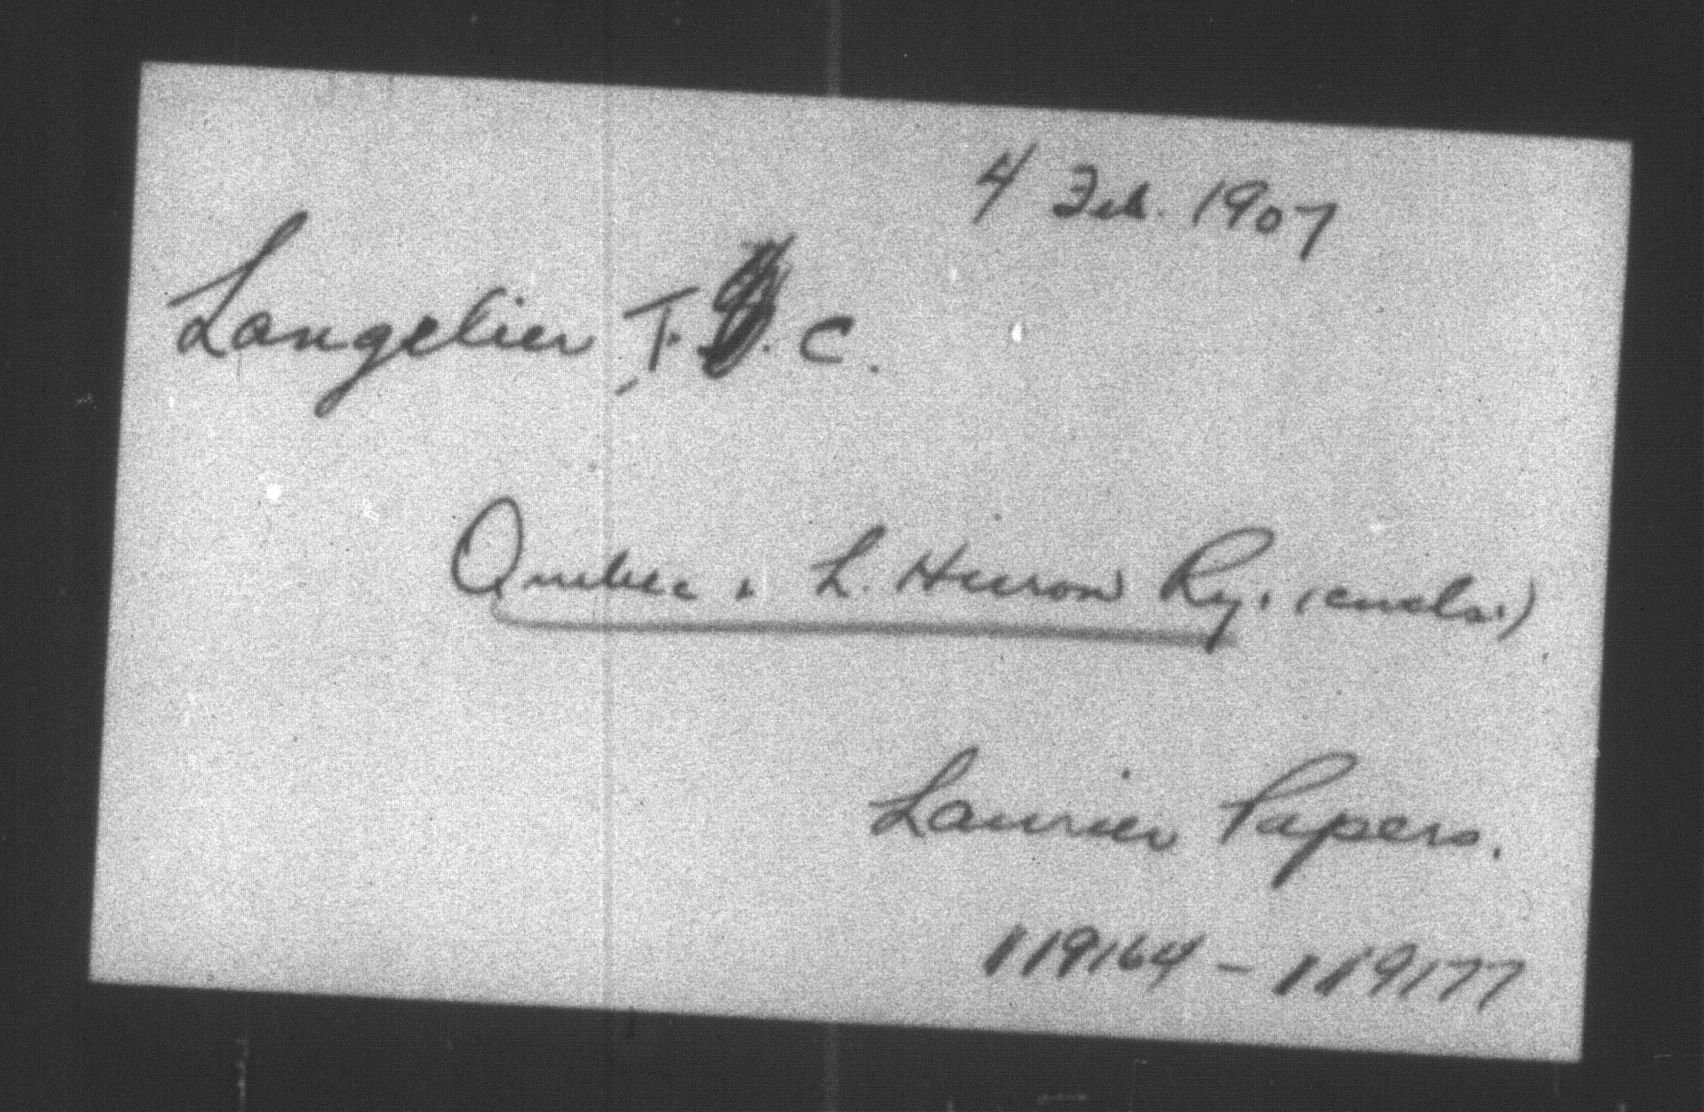 4 Feb. 1907
Langelier, J. C.
Quebec & L. Huron Ry. (encls.)
Laurier Papers.
119164 - 119177